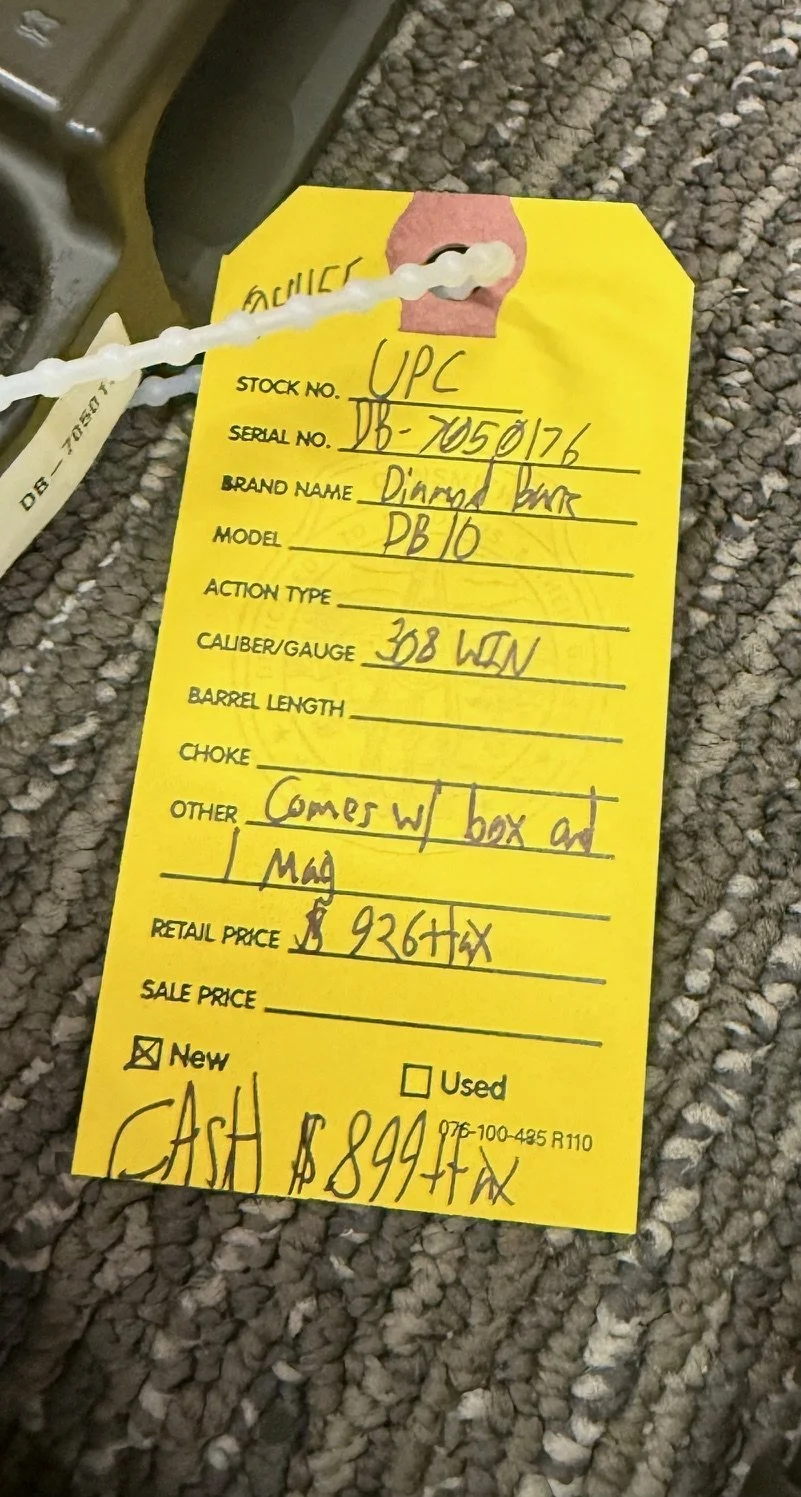 STOCK NO. UPC
SERIAL NO. DB-7050176
BRAND NAME Diamond back
MODEL DB10
ACTION TYPE
CALIBER/GAUGE 308 WIN
BARREL LENGTH
CHOKE
OTHER Comes w/ box and
1 Mag
RETAIL PRICE $ 926+tax
SALE PRICE
☒ New ☐ Used
076-100-485 R110
CASH $ 899+tax
DB-7050